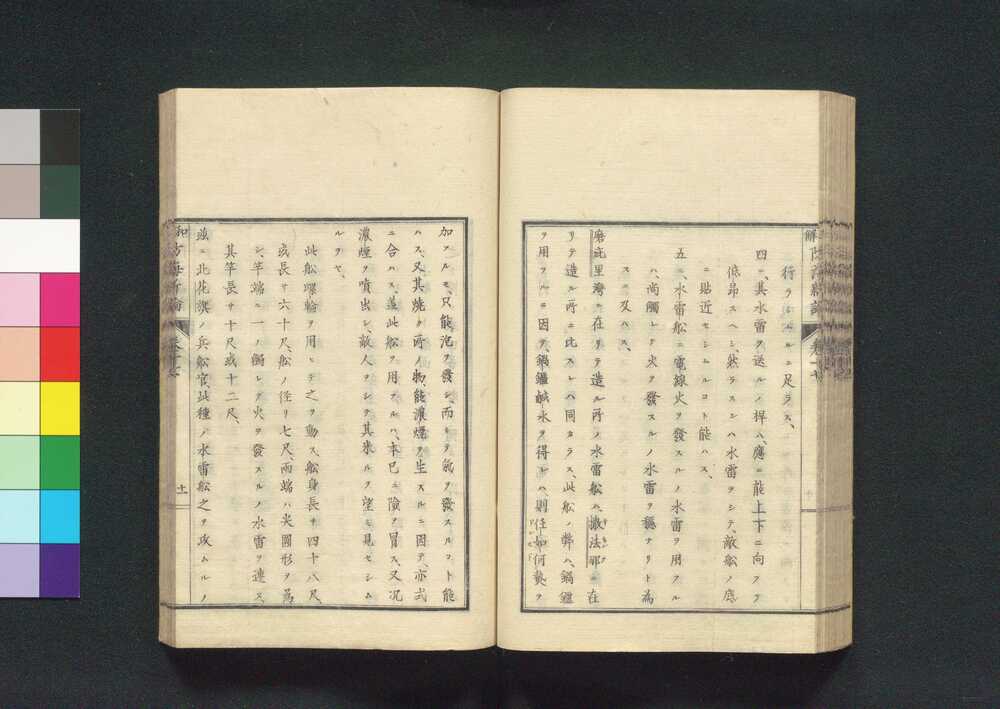 行ラシムルニ足ラス、
四ニ、其水雷ヲ送ルノ桿ハ、應ニ能上下ニ向フテ
低昂スヘシ、然ラスンハ水雷ヲシテ敵船ノ底
ニ貼近セシムルコト能ハス、
五ニ、水雷船ニ電線火ヲ發スルノ水雷ヲ用フル
ハ、尚觸レテ火ヲ發スルノ水雷ヲ穩ナリト為
スニ及ハス、
磨疵里灣ニ在リテ造ル所ノ水雷船ハ、撒法那ニ在
リテ造ル所ニ比スレハ同カラス、此船ノ弊ハ、鍋爐
ヲ用フルニ因テ、鍋爐鹹水ヲ得レハ、則任如何熱ヲ
加フルモ、只能泡ヲ發シ、而シテ氣ヲ發スルコト能
ハス、又其燒ク所ノ物、能濃煙ヲ生スルニ因テ、亦式
ニ合ハス、蓋此船ヲ用フルハ、本已ニ險ヲ冒ス、又况
濃煙ヲ噴出シ、敵人ヲシテ其來ルヲ望ミ見セシム
ルヲヤ、
此船螺輪ヲ用ヒテ之ヲ動ス、船身長サ四十八尺、
或長サ六十尺、船ノ徑リ七尺、兩端ハ尖圓形ヲ為
シ、竿端ニ一ノ觸レテ火ヲ發スルノ水雷ヲ連ス、
其竿長サ十尺或十二尺、
茲ニ北花旗ノ兵船官、此種ノ水雷船之ヲ攻ムルノ
十一